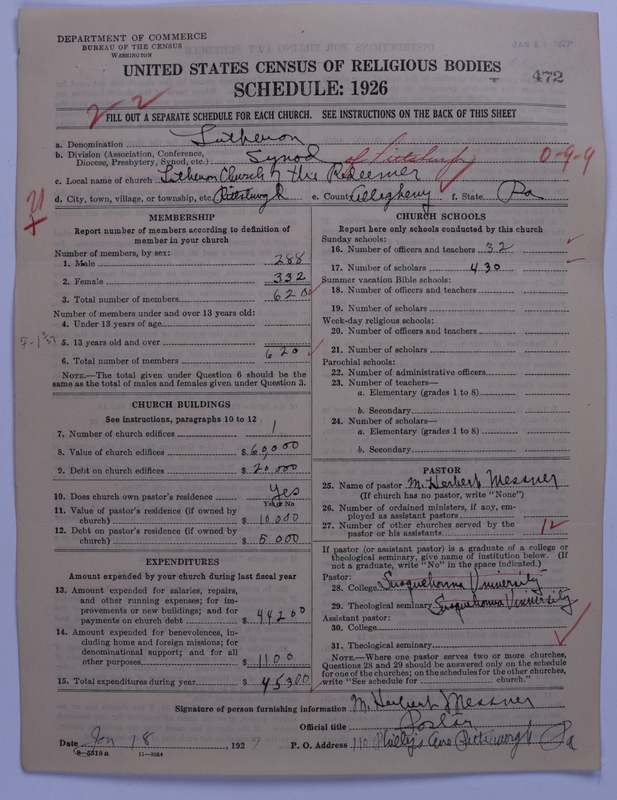 DEPARTMENT OF COMMERCE
BUREAU OF THE CENSUS
WASHINGTON
JAN 21 1927
UNITED STATES CENSUS OF RELIGIOUS BODIES
SCHEDULE: 1926
472
2-2
FILL OUT A SEPARATE SCHEDULE FOR EACH CHURCH. SEE INSTRUCTIONS ON THE BACK OF THIS SHEET
a. Denomination Lutheran
b. Division (Association, Conference, Diocese, Presbytery, Synod, etc.) Synod of Pittsburgh 0-9-9
c. Local name of church Lutheran Church of the Redeemer
d. City, town, village, or township, etc. Pittsburgh e. County Allegheny f. State Pa
MEMBERSHIP
Report number of members according to definition of
member in your church
Number of members, by sex:
1. Male 288
2. Female 332
3. Total number of members 620
Number of members under and over 13 years old:
4. Under 13 years of age
5. 13 years old and over
6. Total number of members 620
NOTE.—The total given under Question 6 should be
same as the total of males and females given under Question 3.
CHURCH BUILDINGS
See instructions, paragraphs 10 to 12
7. Number of church edifices 1
8. Value of church edifices $ 60,000
9. Debt on church edifices $ 20,000
10. Does church own pastor's residence Yes
Yes or No
11. Value of pastor's residence (if owned by
church) $ 10,000
12. Debt on pastor's residence (if owned by
church) $ 5,000
EXPENDITURES
Amount expended by your church during last fiscal year
13. Amount expended for salaries, repairs,
and other running expenses; for im-
provements or new buildings; and for
payments on church debt $ 44200
14. Amount expended for benevolences, in-
cluding home and foreign missions; for
denominational support; and for all
other purposes $ 1100
15. Total expenditures during year $ 45300
CHURCH SCHOOLS
Report here only schools conducted by this church
Sunday schools:
16. Number of officers and teachers 32
17. Number of scholars 430
Summer vacation Bible schools:
18. Number of officers and teachers
19. Number of scholars
Week-day religious schools:
20. Number of officers and teachers
21. Number of scholars
Parochial schools:
22. Number of administrative officers
23. Number of teachers—
a. Elementary (grades 1 to 8)
b. Secondary
24. Number of scholars—
a. Elementary (grades 1 to 8)
b. Secondary
PASTOR
25. Name of pastor M. Herbert Messner
(If church has no pastor, write "None")
26. Number of ordained ministers, if any, em-
ployed as assistant pastors
27. Number of other churches served by the
pastor or his assistants 12
If pastor (or assistant pastor) is a graduate of a college or
theological seminary, give name of institution below. (If
not a graduate, write "No" in the space indicated.)
Pastor:
28. College Susquehanna University
29. Theological seminary Susquehanna University
Assistant pastor:
30. College
31. Theological seminary
NOTE.—Where one pastor serves two or more churches,
Questions 28 and 29 should be answered only on the schedule
for one of the churches; on the schedules for the other churches,
write "See schedule for church."
Signature of person furnishing information M. Herbert Messner
Official title Pastor
Date Jan 18, 1927 P. O. Address 110 Phillips Ave Pittsburgh Pa
8-5518a 11-9064